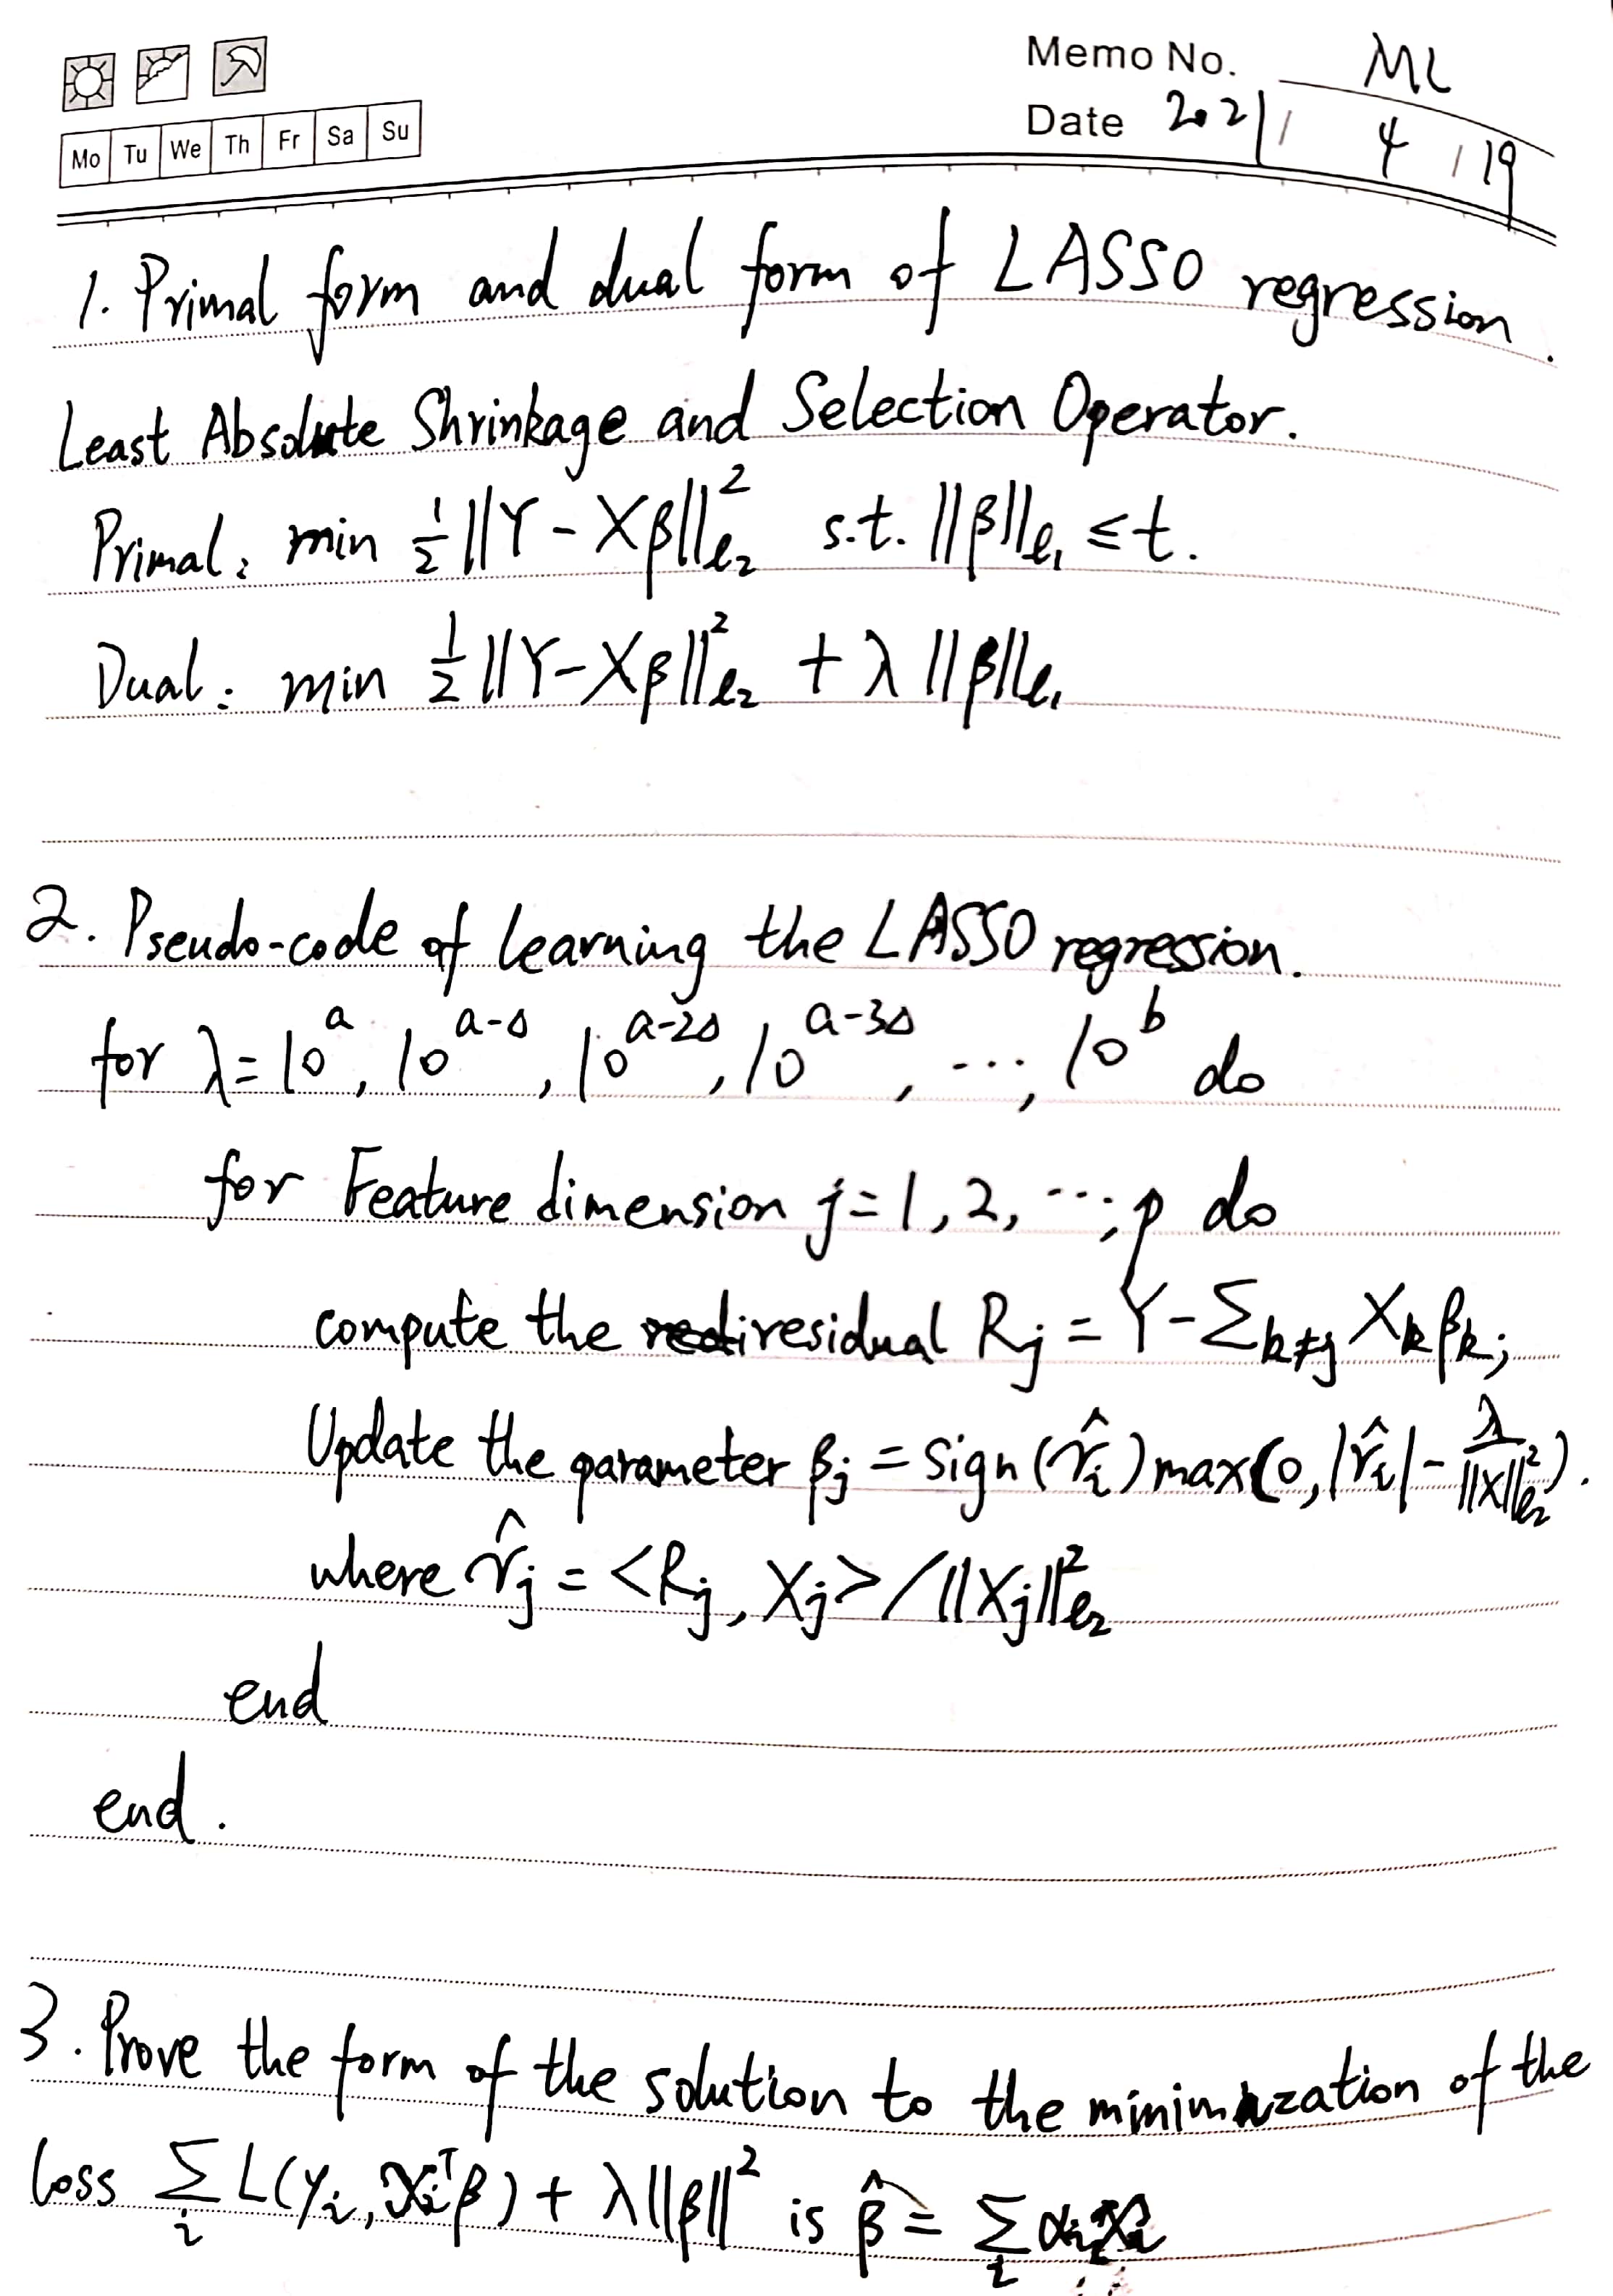 Memo No. ML
Mo Tu We Th Fr Sa Su
Date 2021 / 4 / 19
1. Primal form and dual form of LASSO regression.
Least Absolute Shrinkage and Selection Operator.
Primal: min ½||Y - Xβ||²ℓ₂ s.t. ||β||ℓ₁ ≤ t.
Dual: min ½||Y - Xβ||²ℓ₂ + λ||β||ℓ₁
2. Pseudo-code of learning the LASSO regression.
for λ = 10^a, 10^(a-Δ), 10^(a-2Δ), 10^(a-3Δ), ..., 10^b do
for Feature dimension j = 1, 2, ..., p do
compute the residual R_j = Y - Σ_{k≠j} X_k β_k;
Update the parameter β_j = sign(r̂_i) max(0, |r̂_i| - λ/||X||²ℓ₂).
where r̂_j = <R_j, X_j> / ||X_j||²ℓ₂
end
end.
3. Prove the form of the solution to the minimization of the
loss Σ_i L(y_i, x_i^T β) + λ||β||² is β̂ = Σ_i α_i x_i